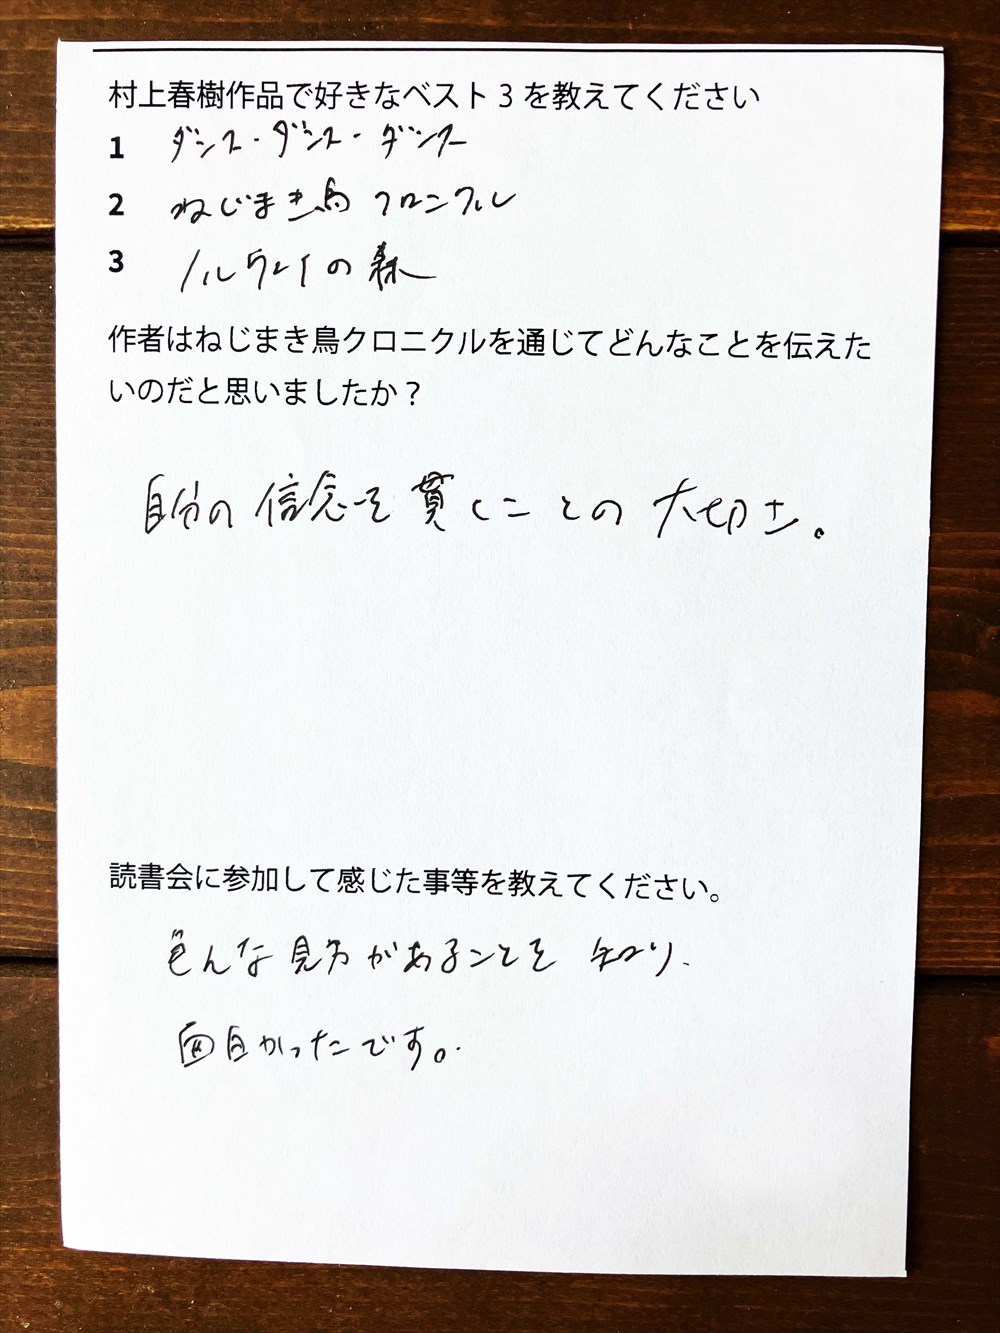 村上春樹作品で好きなベスト3を教えてください
1 ダンス・ダンス・ダンス
2 ねじまき鳥クロニクル
3 ノルウェイの森
作者はねじまき鳥クロニクルを通じてどんなことを伝えた
いのだと思いましたか？
自分の信念を貫くことの大切さ。
読書会に参加して感じた事等を教えてください。
色んな見方があることを知り、
面白かったです。